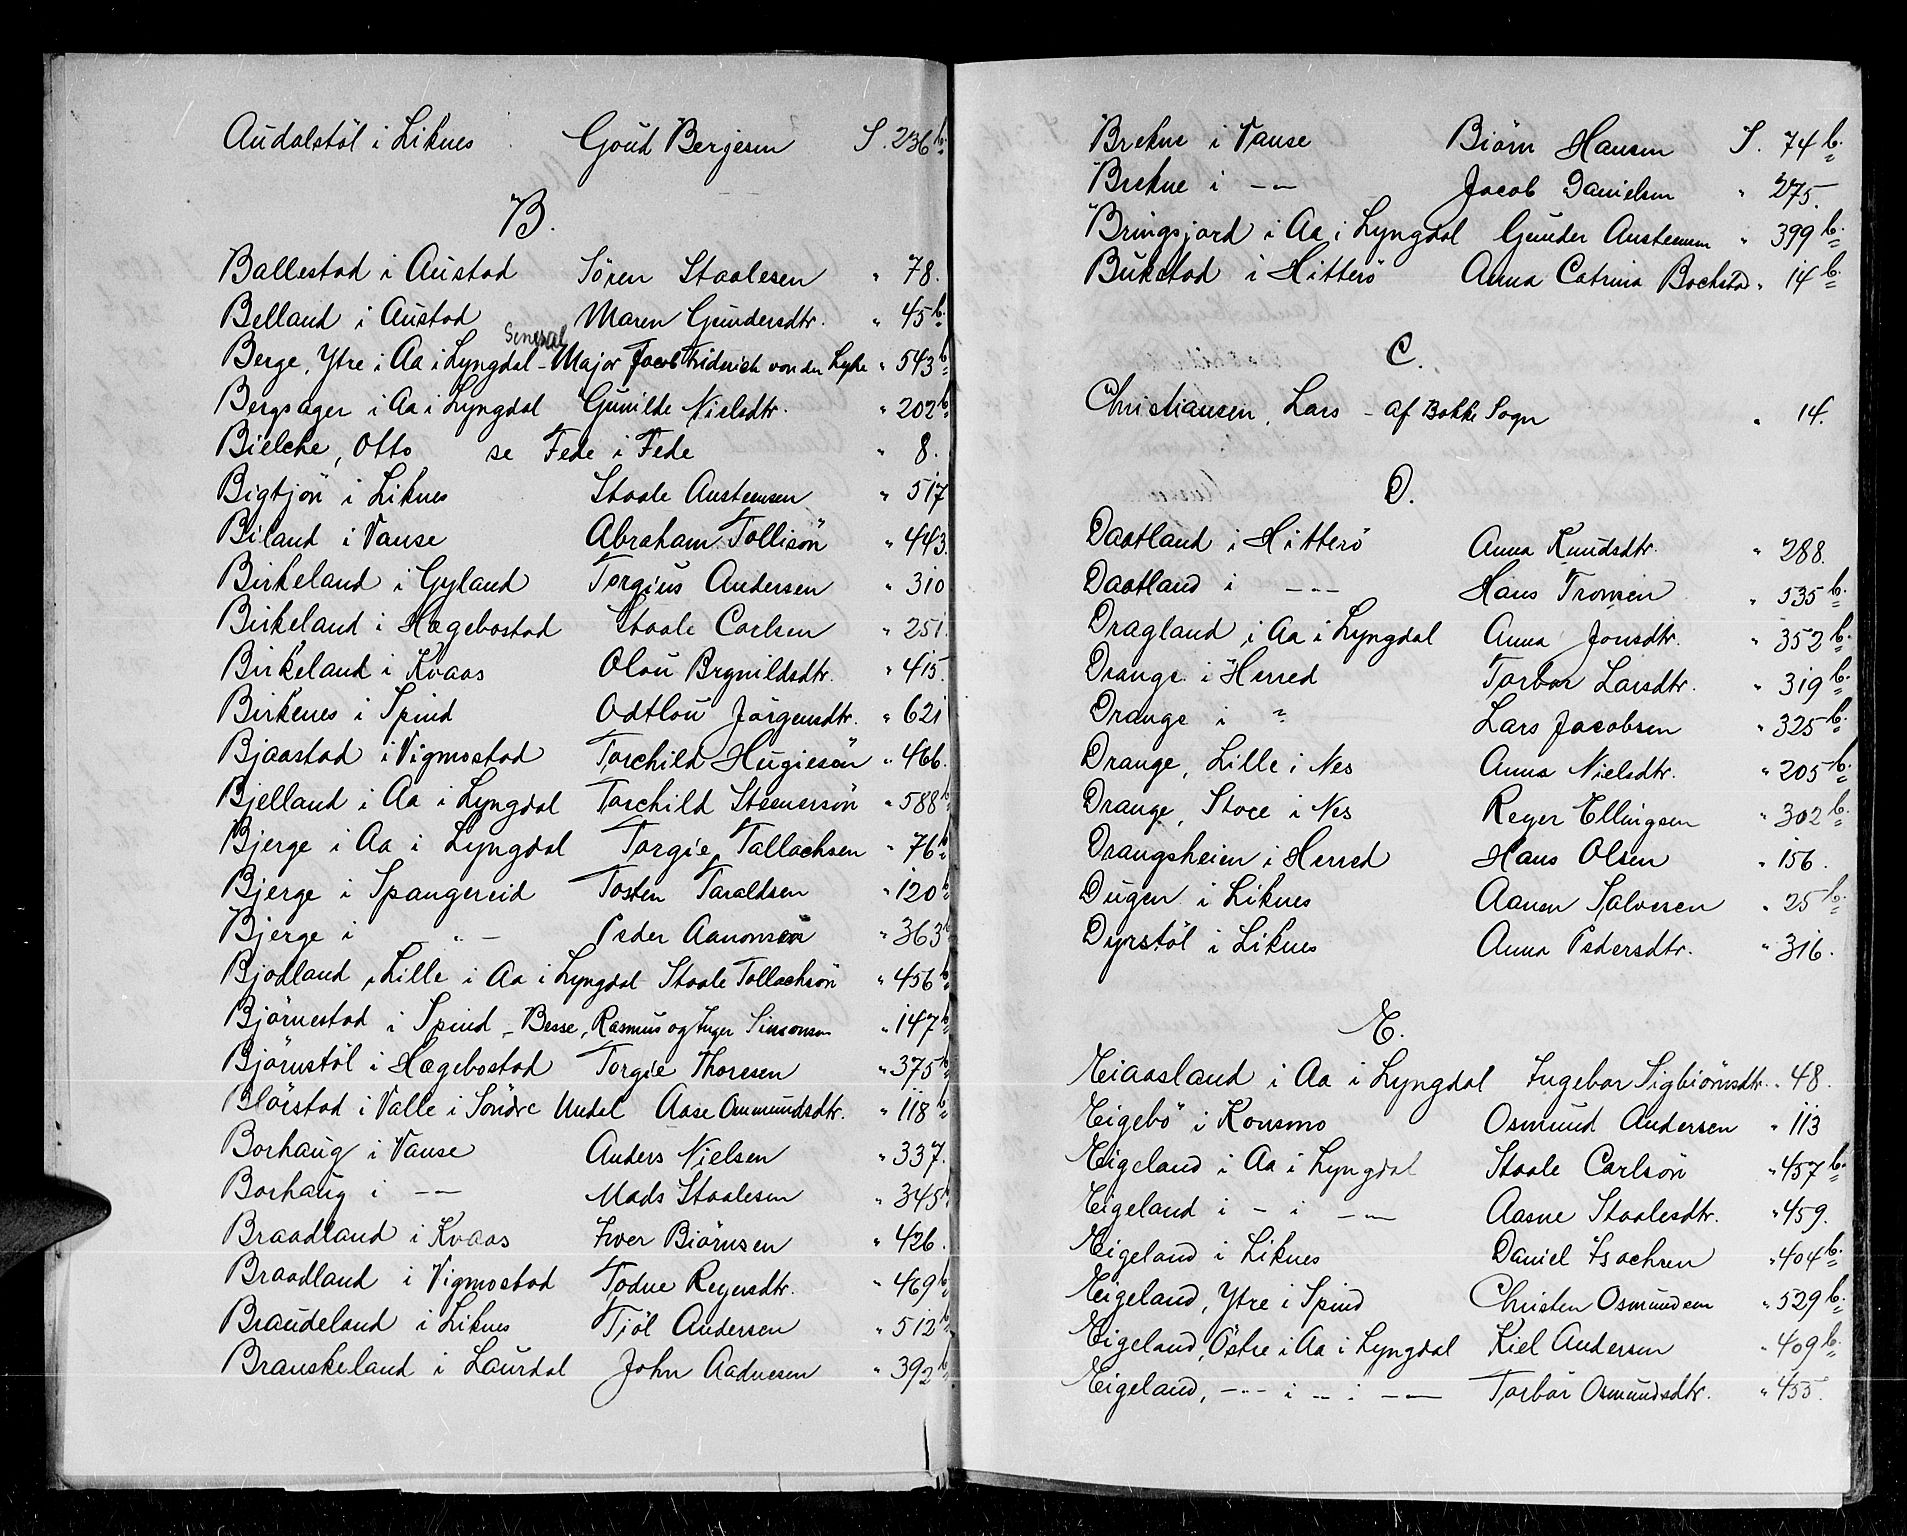 Audalstöl i Liknes Goud Berjesen S. 236 b.
B.
Ballestad i Austad Sören Staalesen " 78.
Belland i Austad Maren Gundersdtr. " 45 b.
General
Berge, Ytre i Aa i Lyngdal - Major Jacob Friderich von der Lyhe " 543 b
Bergsager i Aa i Lyngdal Gunilde Nielsdtr. " 202 b
Bielche, Otto se Fede i Fede " 8.
Bigtjön i Liknes Staale Austensen " 517
Biland i Vanse Abraham Tollisön " 443.
Birkeland i Gyland Torgius Andersen " 310
Birkeland i Hægebostad Staale Carlsen " 251.
Birkeland i Kvaas Olou Brynildsdtr. " 415.
Birkenes i Spind Odtlou Jörgensdtr. " 621
Bjaastad i Vigmostad Torchild Hugiesön " 466.
Bjelland i Aa i Lyngdal Torchild Steenersön " 588 b
Bjerge i Aa i Lyngdal Torgie Tallachsen " 76 b.
Bjerge i Spangereid Tosten Taraldsen " 120 b
Bjerge i - " - Peder Aanonsen " 363 b
Bjodland, Lille i Aa i Lyngdal Staale Tollachsön " 456 b
Björnestad i Spind - Besse, Rasmus og Inger Simonsen " 147 b
Björnstöl i Hægebostad Torgie Thoresen " 375 b
Blörstad i Valle i Söndre Undal Aase Osmundsdtr. " 118 b
Borhaug i Vanse Anders Nielsen " 337.
Borhaug i - - Mads Staalesen " 345 b
Braadland i Kvaas Iver Biörnsen " 426.
Braadland i Vigmostad Todne Reyersdtr. " 469 b
Braudeland i Liknes Tjöl Andersen " 512 b
Branskeland i Laurdal John Aadnesen " 392 b
Brekne i Vanse Biörn Hansen S. 74 b.
Brekne i - - Jacob Danielsen " 275.
Bringsjord i Aa i Lyngdal Gunder Austensen " 399 b.
Bukstad i Hitterö Anna Catrina Bochstad " 14 b.
C.
Christiansen, Lars - af Bakke Sogn " 14.
D.
Daatland i Hitterö Anna Knudsdtr. " 288.
Daatland i - - - Hans Tronsen " 535 b.
Dragland i Aa i Lyngdal Anna Jonsdtr. " 352 b.
Drange i Herred Torbor Larsdtr. " 319 b.
Drange i " Lars Jacobsen " 325 b.
Drange, Lille i Nes Anna Nielsdtr. " 205 b.
Drange, Store i Nes Reyer Ellingsen " 302 b.
Drangsheien i Herred Hans Olsen " 156.
Dugen i Liknes Aanen Salvesen " 25 b.
Dyrstöl i Liknes Anna Pedersdtr. " 316.
E.
Eiaasland i Aa i Lyngdal Ingebor Sigbiörnsdtr. " 48.
Eigebö i Konsmo Osmund Andersen " 113
Eigeland i Aa i Lyngdal Staale Carlsön " 457 b.
Eigeland i - i - - Aasne Staalesdtr. " 459.
Eigeland i Liknes Daniel Isachsen " 404 b.
Eigeland, Ytre i Spind Christen Osmundsen " 529 b.
Eigeland, Östre i Aa i Lyngdal Kiel Andersen " 409 b.
Eigeland, - - - i - - i - - Torbor Osmundsdtr. " 455.